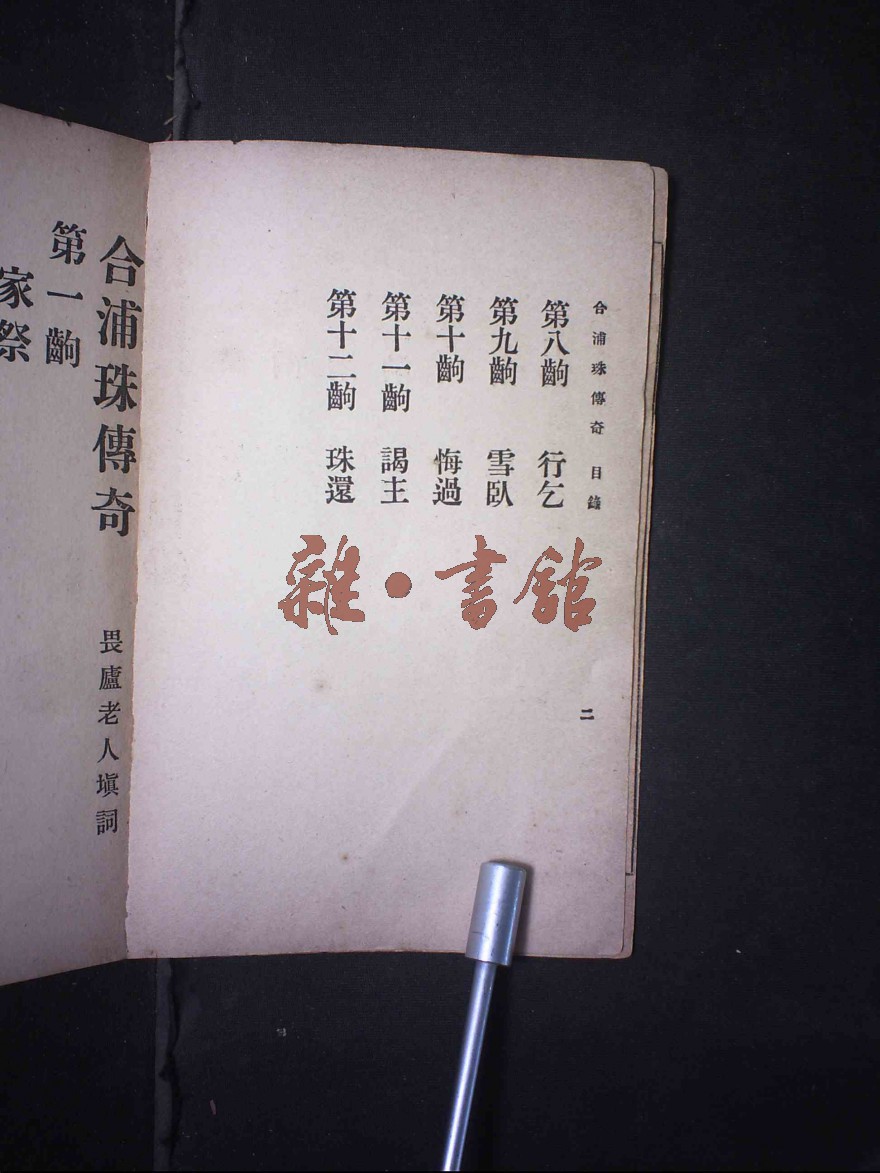 合浦珠傳奇 目錄
第八齣 行乞
第九齣 雪臥
第十齣 悔過
第十一齣 謁主
第十二齣 珠還
二
雜·書館
合浦珠傳奇
畏廬老人塡詞
第一齣
家祭